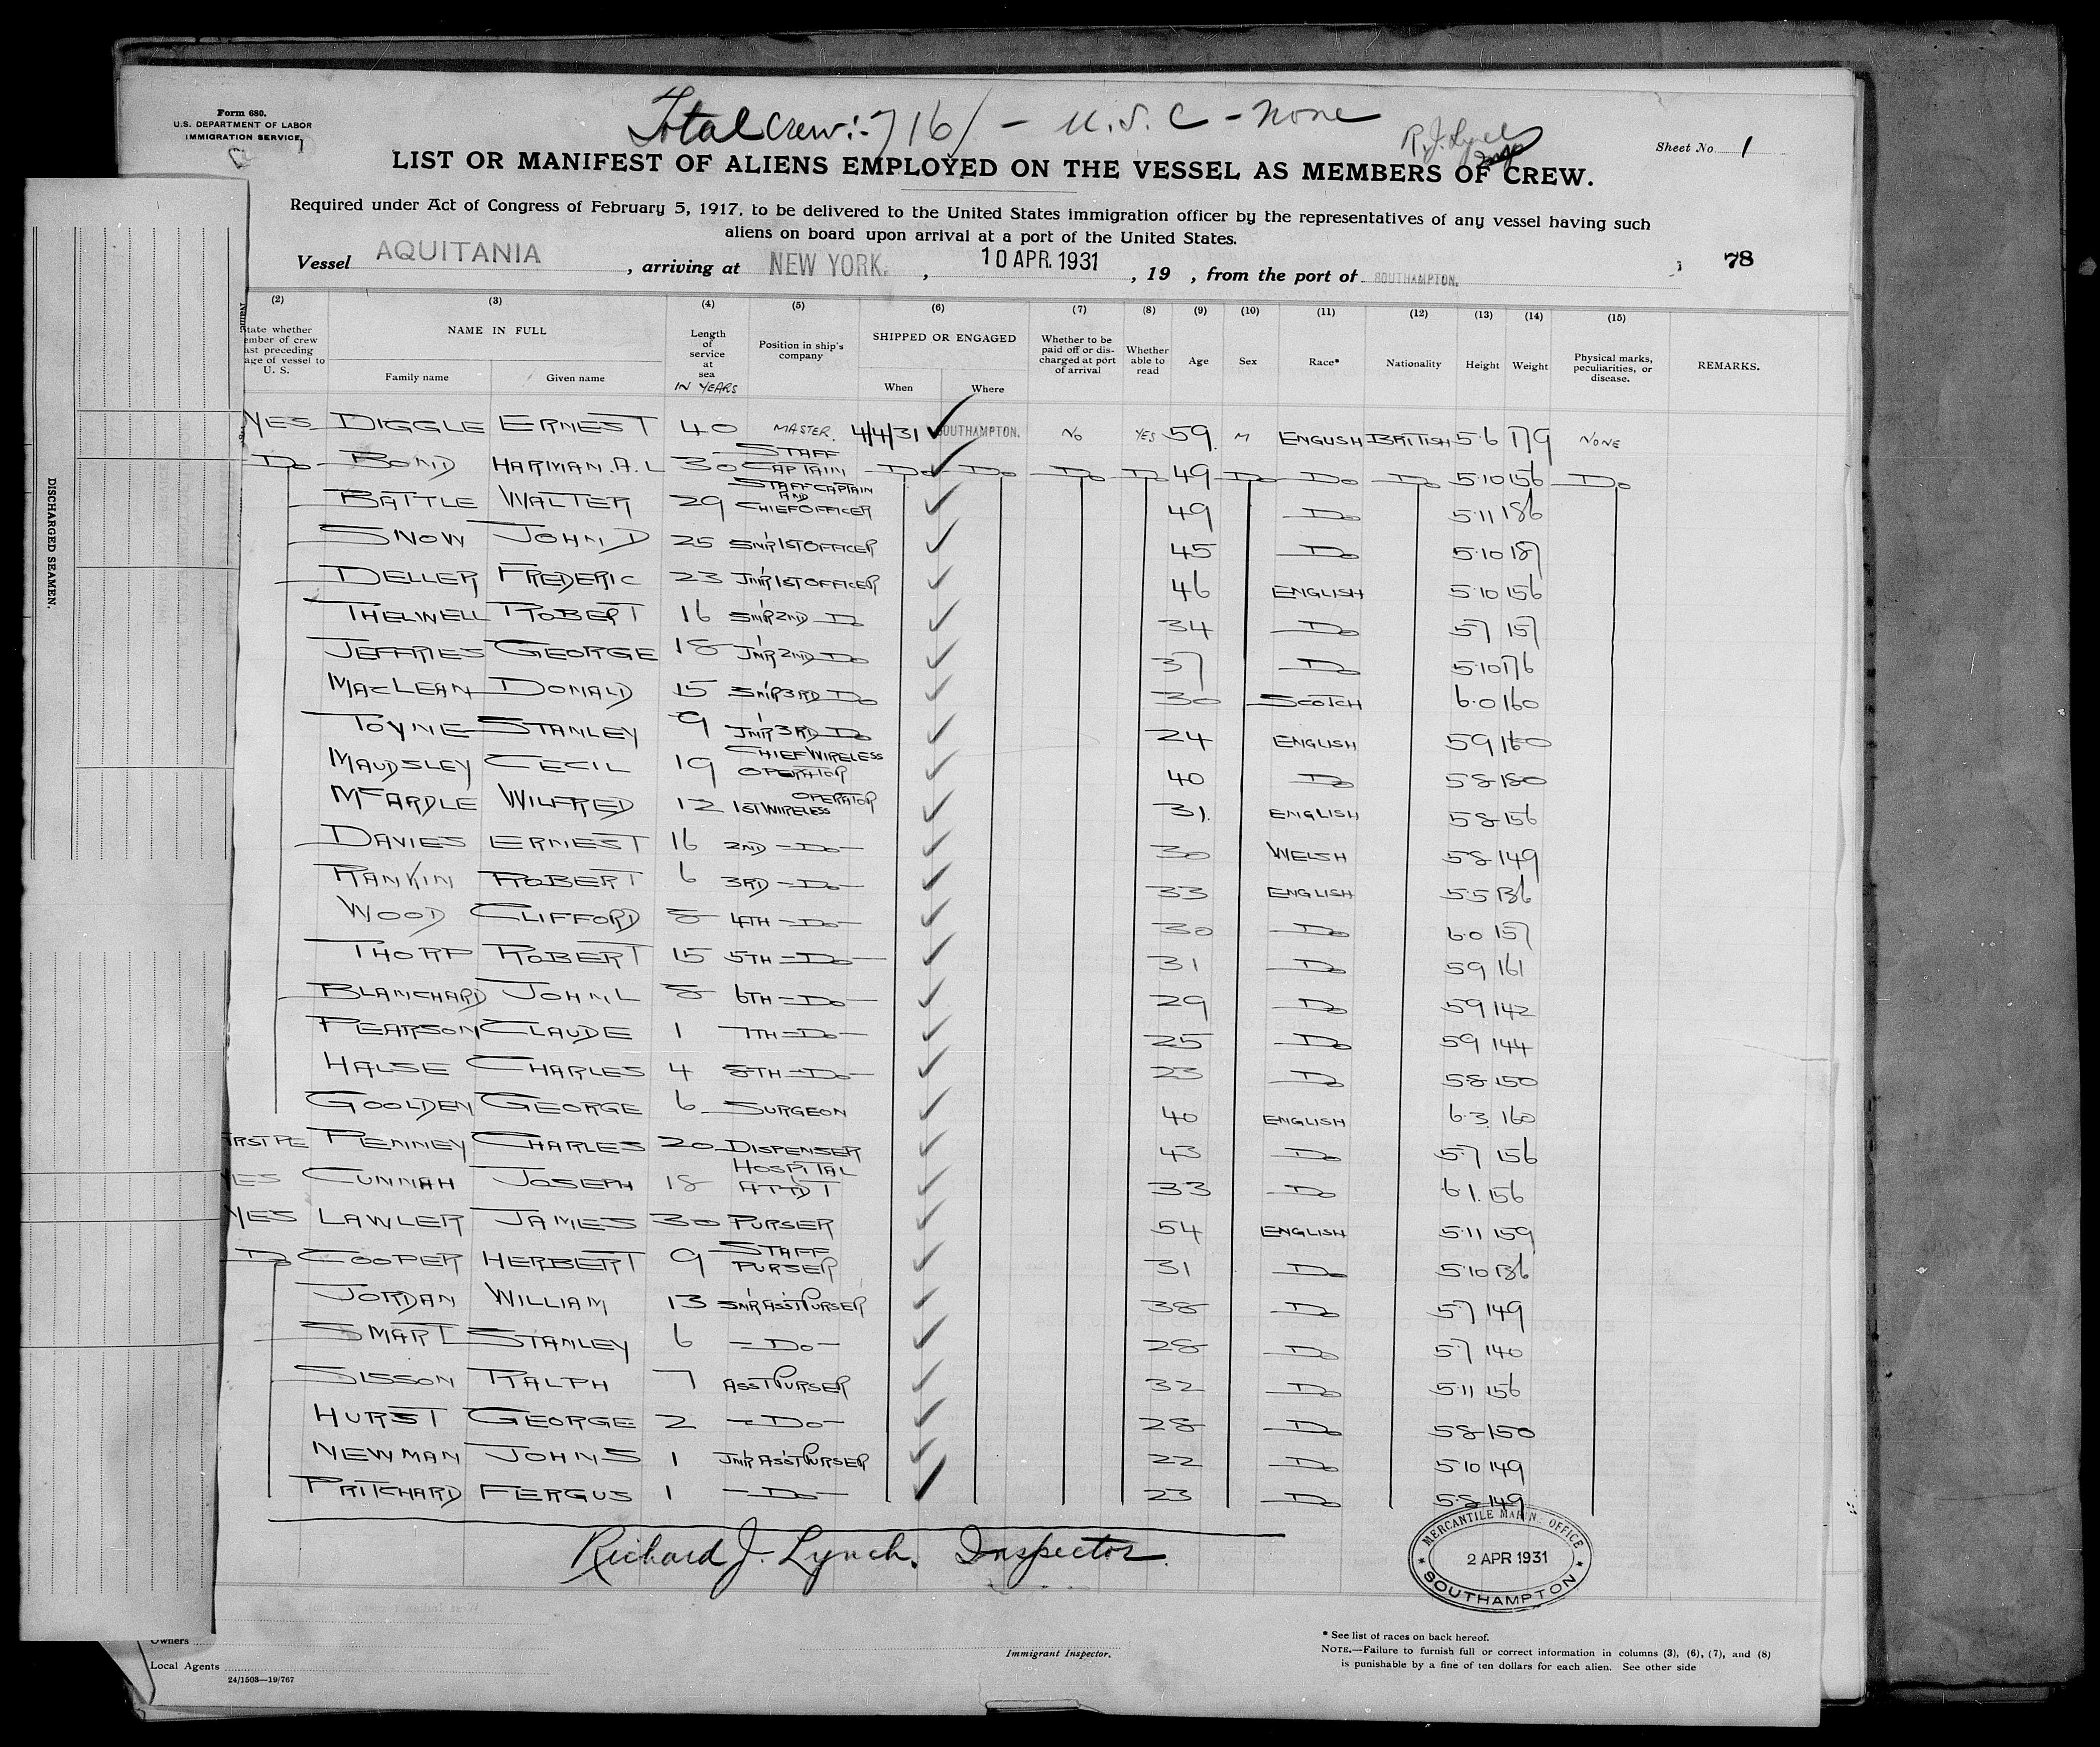 Total Crew:- 716 / - U.S.C - None
Form 680.
U.S. DEPARTMENT OF LABOR
IMMIGRATION SERVICE
R.J. Lynch
Insp
Sheet No. 1
LIST OR MANIFEST OF ALIENS EMPLOYED ON THE VESSEL AS MEMBERS OF CREW.
Required under Act of Congress of February 5, 1917, to be delivered to the United States immigration officer by the representatives of any vessel having such
aliens on board upon arrival at a port of the United States.
Vessel AQUITANIA, arriving at NEW YORK., 10 APR. 1931, 19 , from the port of SOUTHAMPTON. 78
(2) (3) (4) (5) (6) (7) (8) (9) (10) (11) (12) (13) (14) (15)
State whether member of crew last preceding voyage of vessel to U. S.
NAME IN FULL
Family name Given name
Length of service at sea IN YEARS
Position in ship's company
SHIPPED OR ENGAGED
When Where
Whether to be paid off or discharged at port of arrival
Whether able to read
Age
Sex
Race*
Nationality
Height
Weight
Physical marks, peculiarities, or disease.
REMARKS.
YES DIGGLE ERNEST 40 MASTER. 4/4/31 SOUTHAMPTON. NO YES 59 M ENGLISH BRITISH 5·6 179 NONE
Do BOND HARMAN.A.L 30 STAFF CAPTAIN Do Do Do Do 49 Do Do Do 5·10 156 Do
BATTLE WALTER 29 STAFF CAPTAIN AND CHIEF OFFICER 49 Do 5·11 186
SNOW JOHN D 25 SNR 1ST OFFICER 45 Do 5·10 187
DELLER FREDERIC 23 JNR 1ST OFFICER 46 ENGLISH 5·10 156
THELWELL ROBERT 16 SNR 2ND Do 34 Do 5·7 157
JEFFRIES GEORGE 18 JNR 2ND Do 37 Do 5·10 176
MACLEAN DONALD 15 SNR 3RD Do 30 SCOTCH 6·0 160
TOYNE STANLEY 9 JNR 3RD Do 24 ENGLISH 5·9 160
MAUDSLEY CECIL 19 CHIEF WIRELESS OPERATOR 40 Do 5·8 180
McARDLE WILFRED 12 1ST WIRELESS OPERATOR 31. ENGLISH 5·8 156
DAVIES ERNEST 16 2ND - Do - 30 WELSH 5·8 149
RANKIN ROBERT 6 3RD - Do - 33 ENGLISH 5·5 136
WOOD CLIFFORD 8 4TH - Do - 30 Do 6·0 157
THORP ROBERT 15 5TH - Do - 31 Do 5·9 161
BLANCHARD JOHN L 8 6TH - Do - 29 Do 5·9 142
PEARSON CLAUDE 1 7TH - Do - 25 Do 5·9 144
HALSE CHARLES 4 8TH - Do - 23 Do 5·8 150
GOOLDEN GEORGE 6 SURGEON 40 ENGLISH 6·3 160
PENNEY CHARLES 20 DISPENSER 43 Do 5·7 156
YES CUNNAH JOSEPH 18 HOSPITAL ATTDT 33 Do 6·1 156
YES LAWLER JAMES 30 PURSER 54 ENGLISH 5·11 159
Do COOPER HERBERT 9 STAFF PURSER 31 Do 5·10 136
JORDAN WILLIAM 13 SNR ASST PURSER 38 Do 5·7 149
SMART STANLEY 6 - Do - 28 Do 5·7 140
SISSON RALPH 7 ASST PURSER 32 Do 5·11 156
HURST GEORGE 2 - Do - 28 Do 5·8 150
NEWMAN JOHN S 1 JNR ASST PURSER 22 Do 5·10 149
PRITCHARD FERGUS 1 - Do - 23 Do 5·8 149
Richard J. Lynch. Inspector
MERCANTILE MARINE OFFICE
2 APR 1931
SOUTHAMPTON
DISCHARGED SEAMEN.
Owners
Local Agents
24/1503—19/767
Immigrant Inspector.
* See list of races on back hereof.
NOTE.—Failure to furnish full or correct information in columns (3), (6), (7), and (8)
is punishable by a fine of ten dollars for each alien. See other side